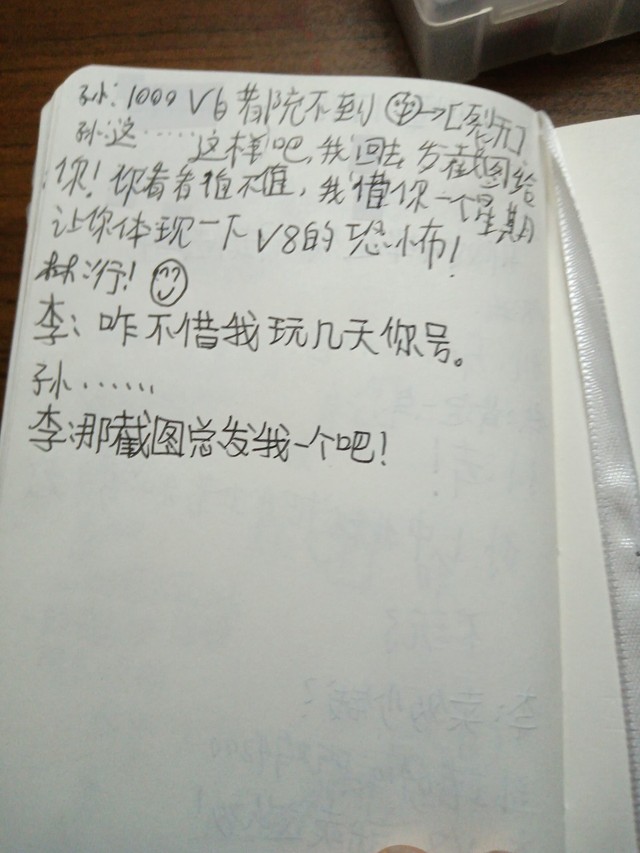 孙:1000 V6都玩不到 →[裂开]
孙:这……这样吧,我回去发截图给
你!你看看值不值,我借你一个星期
让你体现一下V8的恐怖!
林:行!
李:咋不借我玩几天你号。
孙……
李:那截图总发我一个吧!